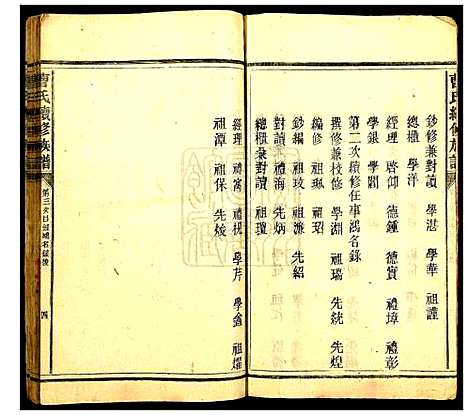 曹氏續修族譜
鈔修兼對讀 學湛 學華 祖謹
總櫃 學洋
經理 啓仰 德鍾 德寶 禮璋 禮彰
學銀 學閶
第二次續修任事鴻名錄
撰修兼校修 學淵 祖瑞 先統 先煌
編修 祖玟 祖珆
鈔編 祖琳 祖濂 先紹
對讀 禮海 先炳
總櫃兼對讀 祖瓊
經理 禮寓 禮槻 學芹 學鑫 祖燿
祖潭 祖保 先焌
曹氏續修族譜
四